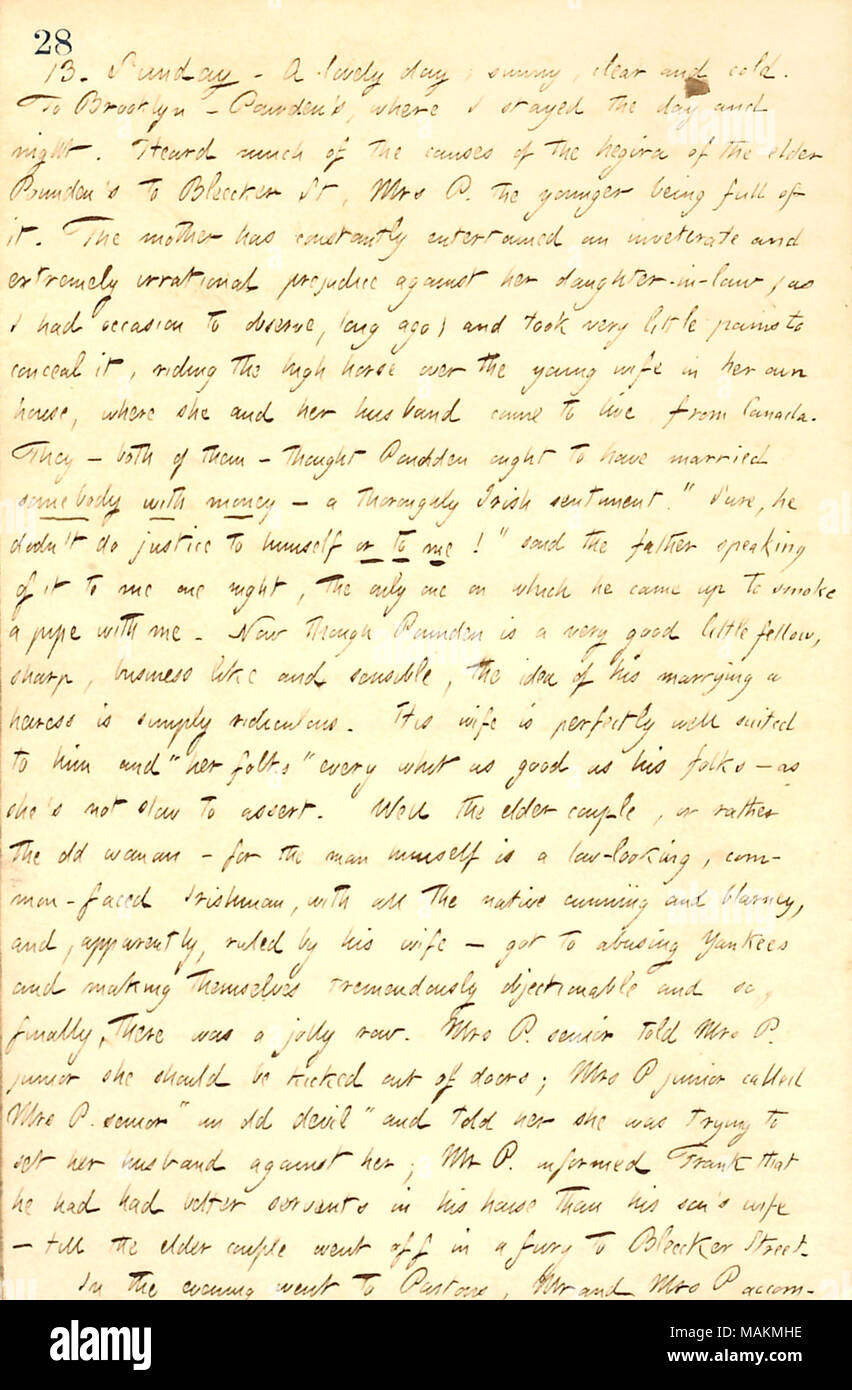 28
13. Sunday - A lovely day; sunny, clear and cold.
To Brooklyn - Pounden's, where I stayed the day and
night. Heard much of the causes of the hegira of the elder
Pounden's to Bleecker St, Mrs P. the younger being full of
it. The mother has constantly entertained an inveterate and
extremely irrational prejudice against her daughter-in-law, (as
I had occasion to observe, long ago) and took very little pains to
conceal it, riding the high horse over the young wife in her own
house, where she and her husband came to live from Canada.
They - both of them - thought Poudden ought to have married
somebody with money - a thoroughly Irish sentiment. "Sure, he
dodn't do justice to himself or to me!" said the father speaking
of it to me one night, the only one on which he came up to smoke
a pipe with me. Now though Pounden is a very good little fellow,
sharp, business like and sensible, the idea of his marrying a
heiress is simply ridiculous. His wife is perfectly well suited
to him and "her folks" every whit as good as his folks - as
she's not slow to assert. Well the elder couple, or rather
the old woman - for the man himself is a low-looking, com-
mon-faced Irishman, with all the native cunning and blarney,
and, apparently, ruled by his wife - got to abusing Yankees
and making themselves tremendously objectionable and so,
finally, there was a jolly row. Mrs P. senior told Mrs P.
junior she should be kicked out of doors; Mrs P junior called
Mrs P. senior "an old devil" and told her she was trying to
set her husband against her; Mr P. informed Frank that
he had had better servents in his house than his son's wife
- till the elder couple went off in a fury to Bleecker Street.
In the evening went to Partons, Mr and Mrs P accom-
alamy
Image ID: MAKMHE
www.alamy.com